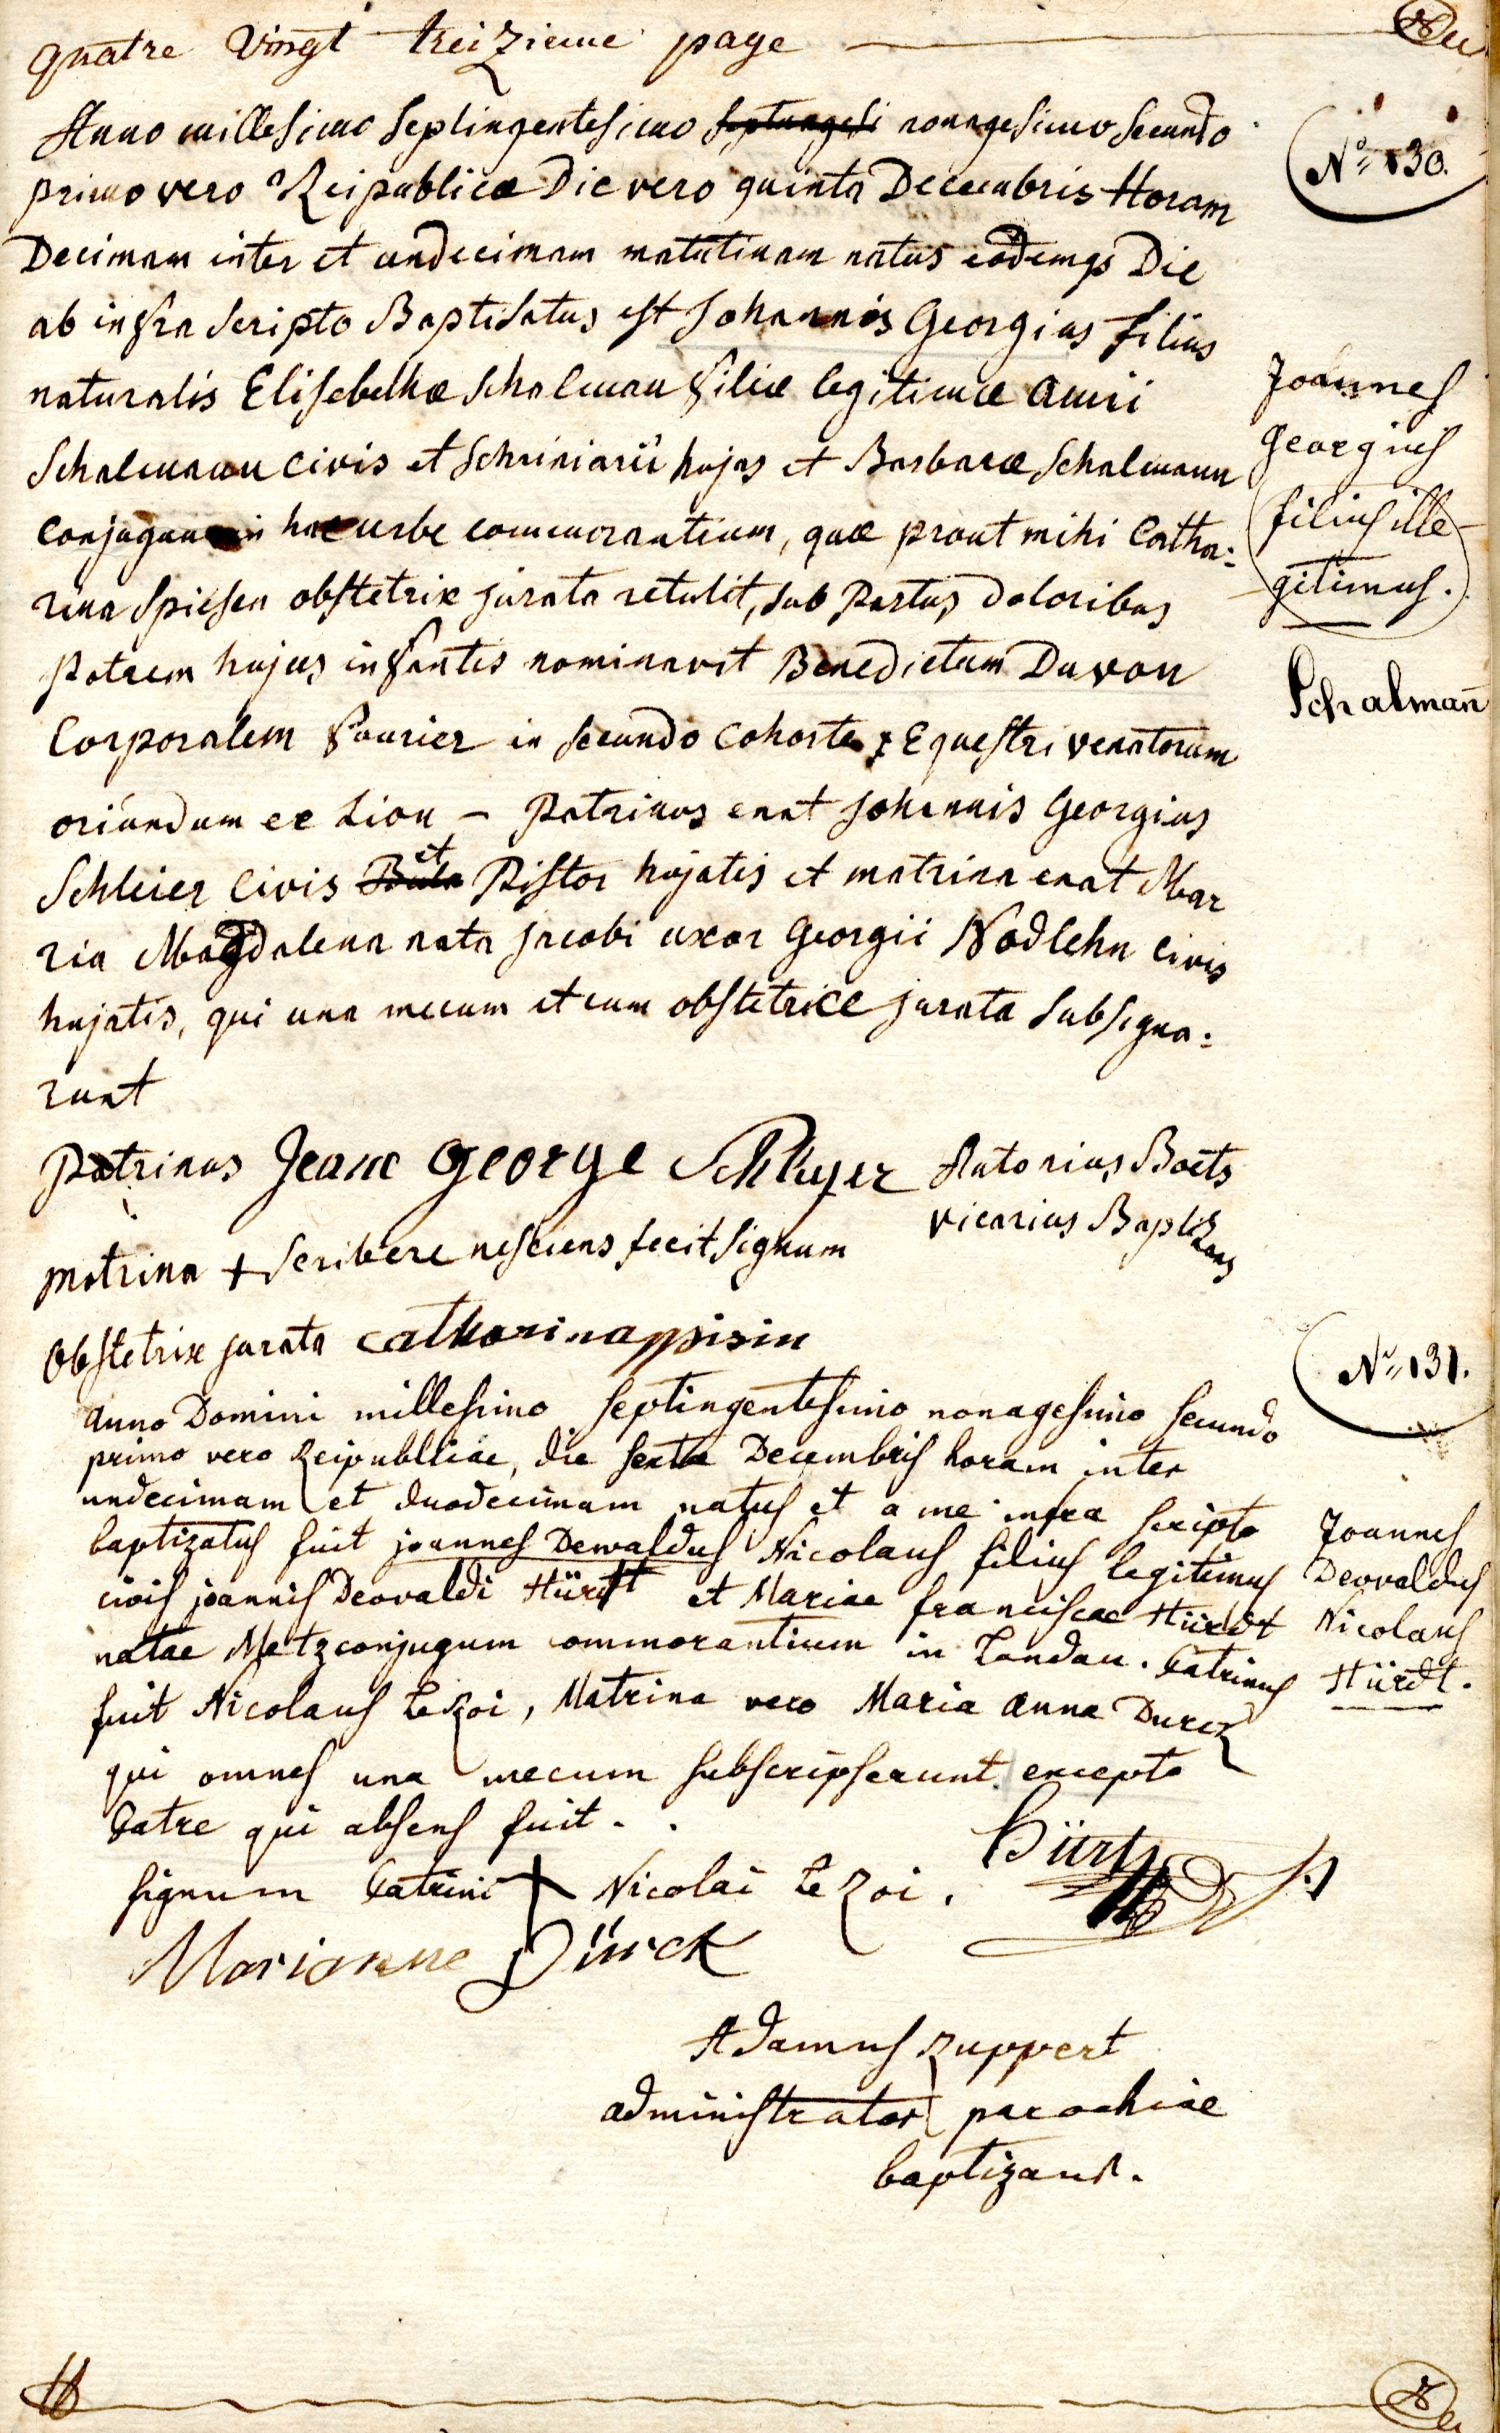 quatre vingt treizieme page
Nº 130.
Anno millesimo septingentesimo septuagesi nonagesimo secundo
primo vero Reipublicæ Die vero quinta Decembris Horam
Decimam inter et undecimam matutinam natus eodemqs Die
ab infra scripto Baptisatus est Johannis Georgius filius
naturalis Elisebethæ Schalman filiæ legitimæ
Schalmann civis et schriniarii hujas et Barbaræ Schalmann
conjugum in hac urbe commorantium, quæ prout mihi Catha:
rina Spiesen obstetrix jurata retulit, sub Partus doloribus
Patrem hujus infantis nominavit Benedictum Davon
Corporalem fourier in secundo Cohorte Equestri venatorum
oriundum ex Lion – Patrinus erat Johannis Georgius
Schleier civis et Pistor hujatis et matrina erat Mar
ria Magdalena nata Jacobi uxor Georgii Nodlehn civis
hujatis, qui una mecum et cum obstetrice jurata subsigna:
runt
Joannes
Georgius
filius ille-
gitimus.
Schalman̄
Patrinus Jeane George Schleyer
Antonius Boets
vicarius Baptizans
matrina + scribere nesciens fecit signum
Obstetrix jurata catharina ppisin
Nº 131.
Anno Domini millesimo septingentesimo nonagesimo secundo
primo vero Reipubliciae, die sexta Decembris horam inter
undecimam et duodecimam natus et a me infra scripto
baptizatus fuit joannes Dewaldus Nicolaus filius legitimus
civis joannis Deovaldi Hürdt et Mariae franciscae Hürdt
natae Metz conjugum commorantium in Landau. Patrinus
fuit Nicolaus Le Roi, Matrina vero Maria Anna Durck
qui omnes una mecum subscripserunt excepto
Patre qui absens fuit.
Joannes
Deovaldus
Nicolaus
Hürdt.
signum Patrini + Nicolai Le Roi.
Marianne Dürck
Adamus Ruppert
administrator parochiae
baptizans.